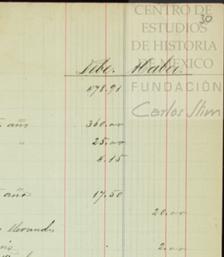 CENTRO DE
ESTUDIOS
DE HISTORIA
DE MÉXICO
FUNDACIÓN
Carlos Slim
30
Debe. Haber.
478.91
año 360.00
" 25.00
4.15
año 17.50
20.00
2.00